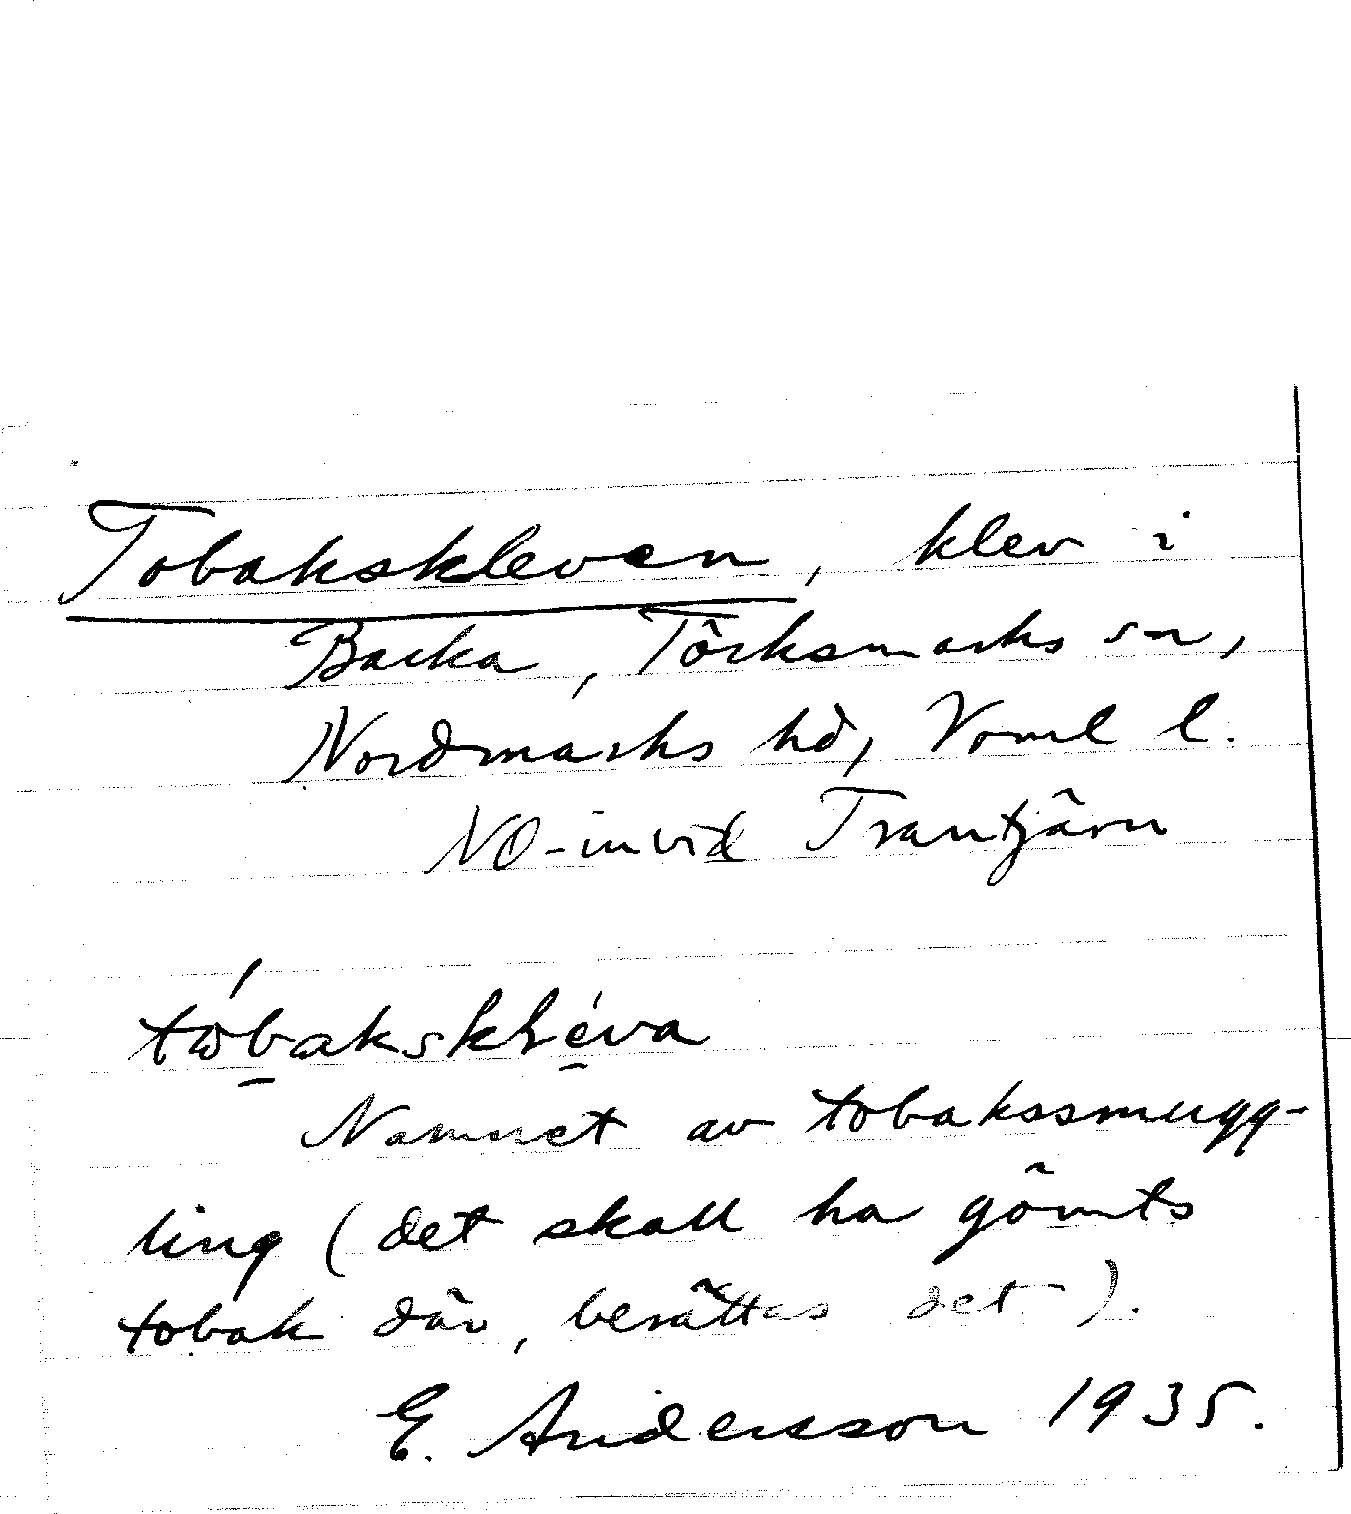 Tobakskleven, klev i
Backa, Törksmarks sn,
Nordmarks hd, Vrml l.
NO-invid Trantjärn
Namnet av tobakssmugg-
ling (det skall ha gömts
tobak där, berättas det).
E. Andersson 1935.